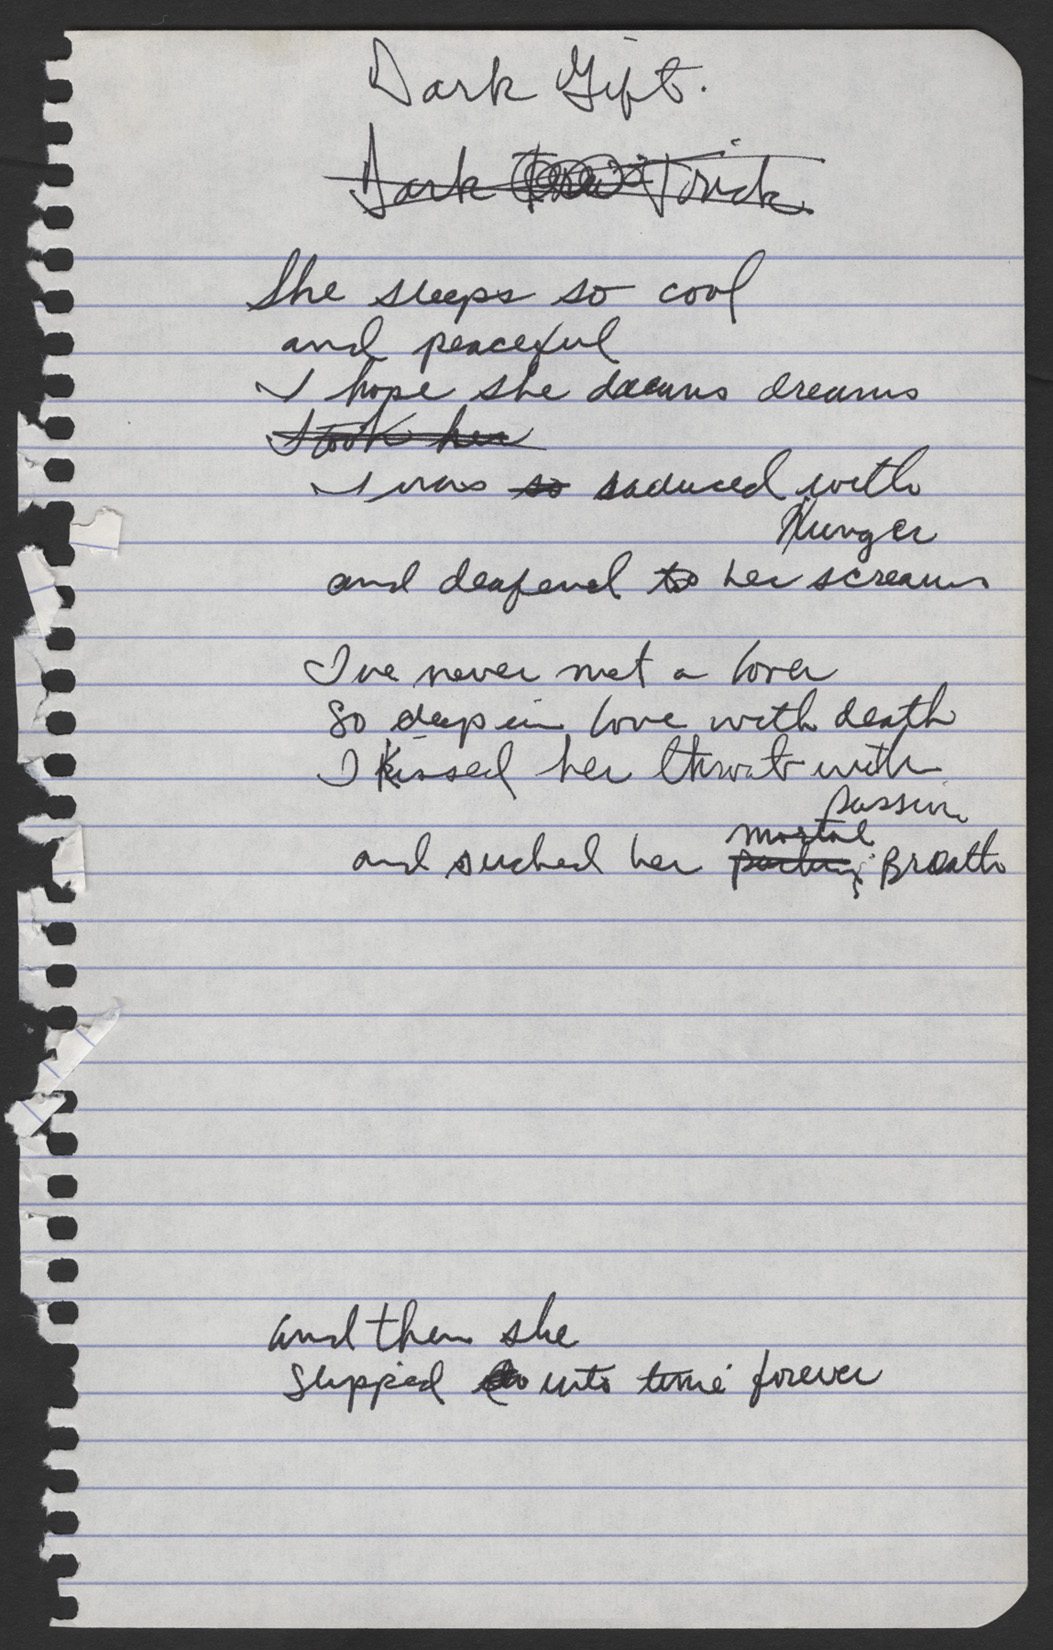 Dark Gift.
Dark Trick
She sleeps so cool
and peaceful
I hope she dreams dreams
I took her
I was so saduced with
Hunger
and deafend to her screams
I've never met a lover
So deep in love with death
I kissed her throat with
passion
mortal
and sucked her parting Breath
and then she
slipped into time forever